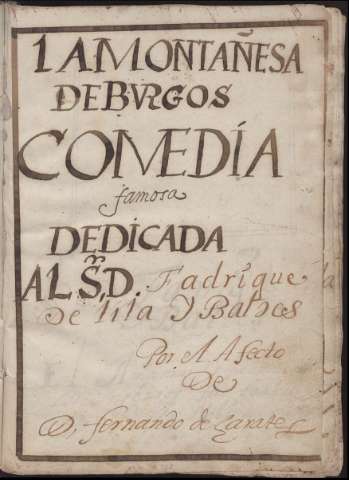 LA MONTAÑESA
DE BVRGOS
COMEDÍA
famosa
DEDICADA
AL S.r D. Fadrique
de lila y Baldes
Por el Afecto
De
D. fernando de Zarate